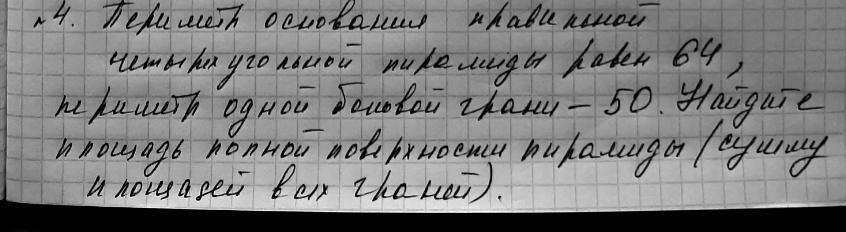 №4. Периметр основания правильной
четырехугольной пирамиды равен 64,
периметр одной боковой грани – 50. Найдите
площадь полной поверхности пирамиды (сумму
площадей всех граней).